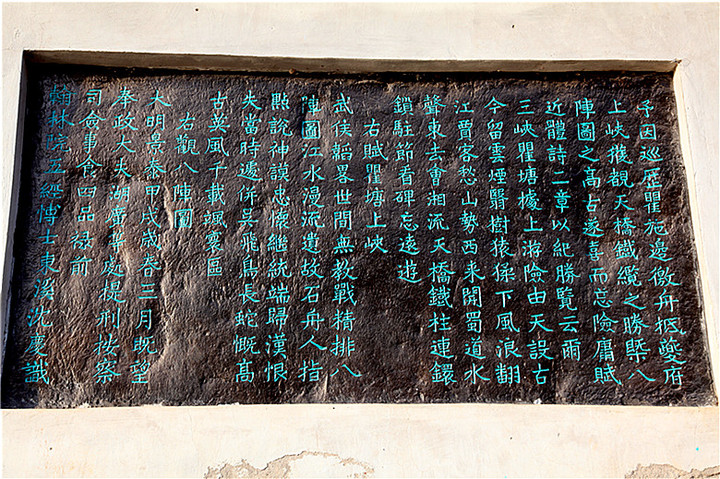 予因巡歷瞿施邊徼舟抵夔府
上峽獲覩天橋鐵纜之勝槩八
陣圖之高古遂喜而忘險庸賦
近體詩二章以紀勝覽云爾
三峽瞿塘據上游險由天設古
今留雲煙翳樹猿猱下風浪翻
江賈客愁山勢西来開蜀道水
聲東去會湘流天橋鐵柱連鐶
鎖駐節看碑忘遠遊
右賦瞿塘上峽
武侯韜畧世間無教戰精排八
陣圖江水漫流遺故石舟人指
點說神謨忠懷繼統端歸漢恨
失當時遽併吳飛鳥長蛇慨高
古英風千載颯寰區
右觀八陣圖
大明景泰甲戌歲春三月既望
奉政大夫湖廣等處提刑按察
司僉事食四品祿前
翰林院五經博士東溪沈慶識